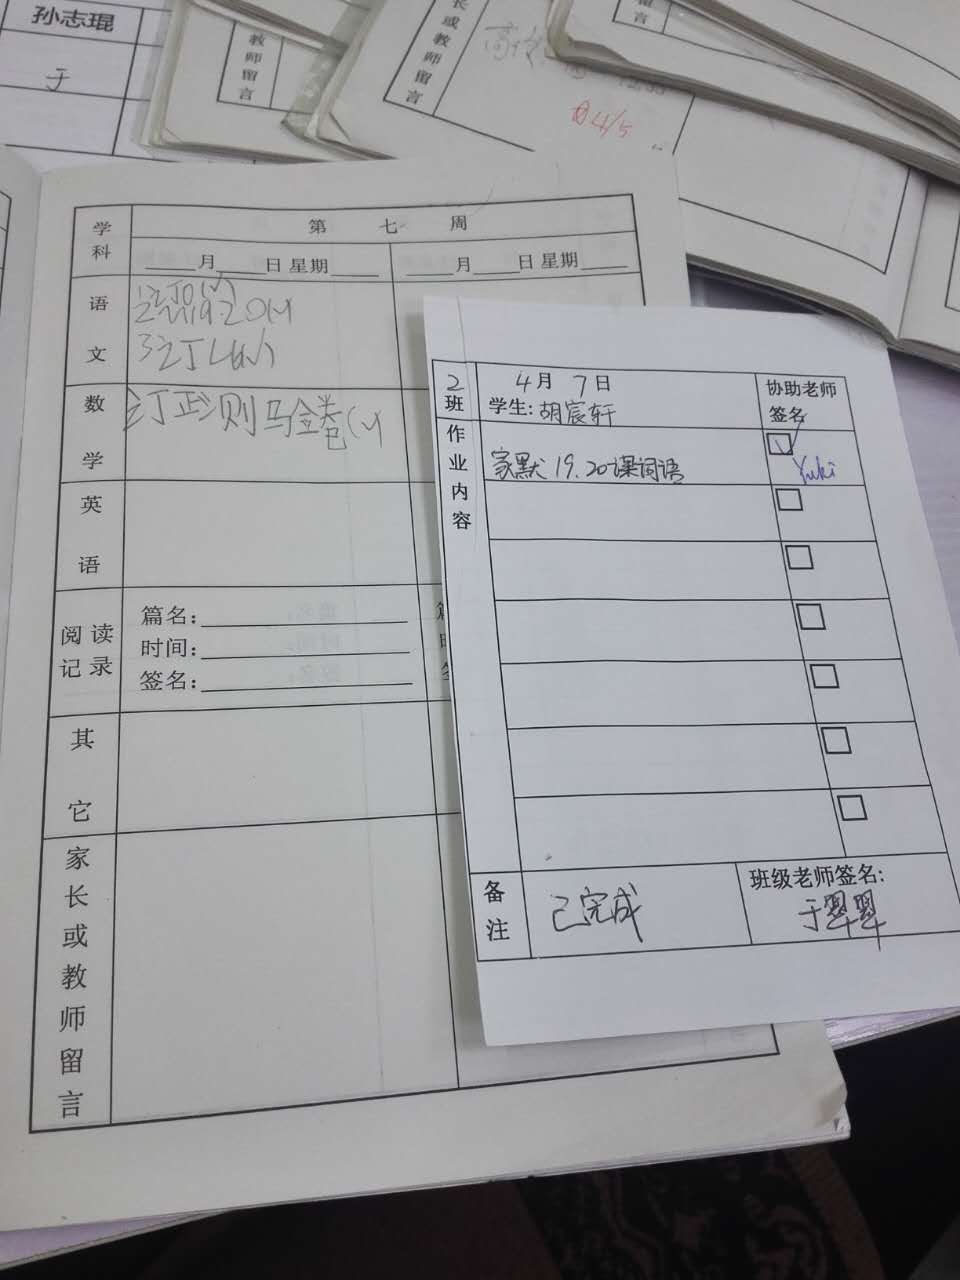 孙志琨
于
教师留言
长或教师留言
言
4/5
学科
第 七 周
月 日 星期
月 日 星期
语文
数学
订正
英语
阅读记录
篇名:
时间:
签名:
其它
家长或教师留言
2班
4月 7日
学生: 胡宸轩
协助老师签名
作业内容
家默 19.20课词语
Yuki
备注
已完成
班级老师签名:
于翠翠